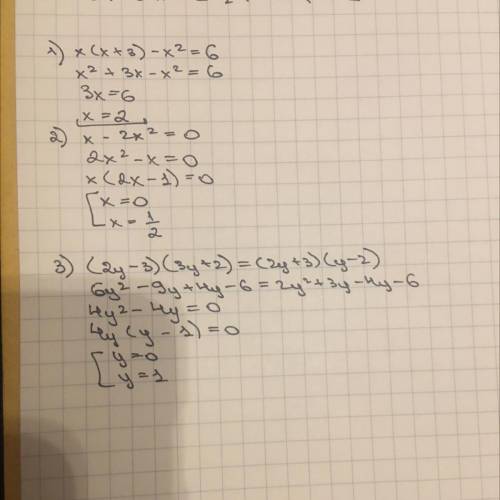 1) x(x+3)-x²=6
x²+3x-x²=6
3x=6
x=2
2) x-2x²=0
2x²-x=0
x(2x-1)=0
[x=0
x=1/2
3) (2y-3)(3y+2)=(2y+3)(y-2)
6y²-9y+4y-6=2y²+3y-4y-6
4y²-4y=0
4y(y-1)=0
[y=0
y=1